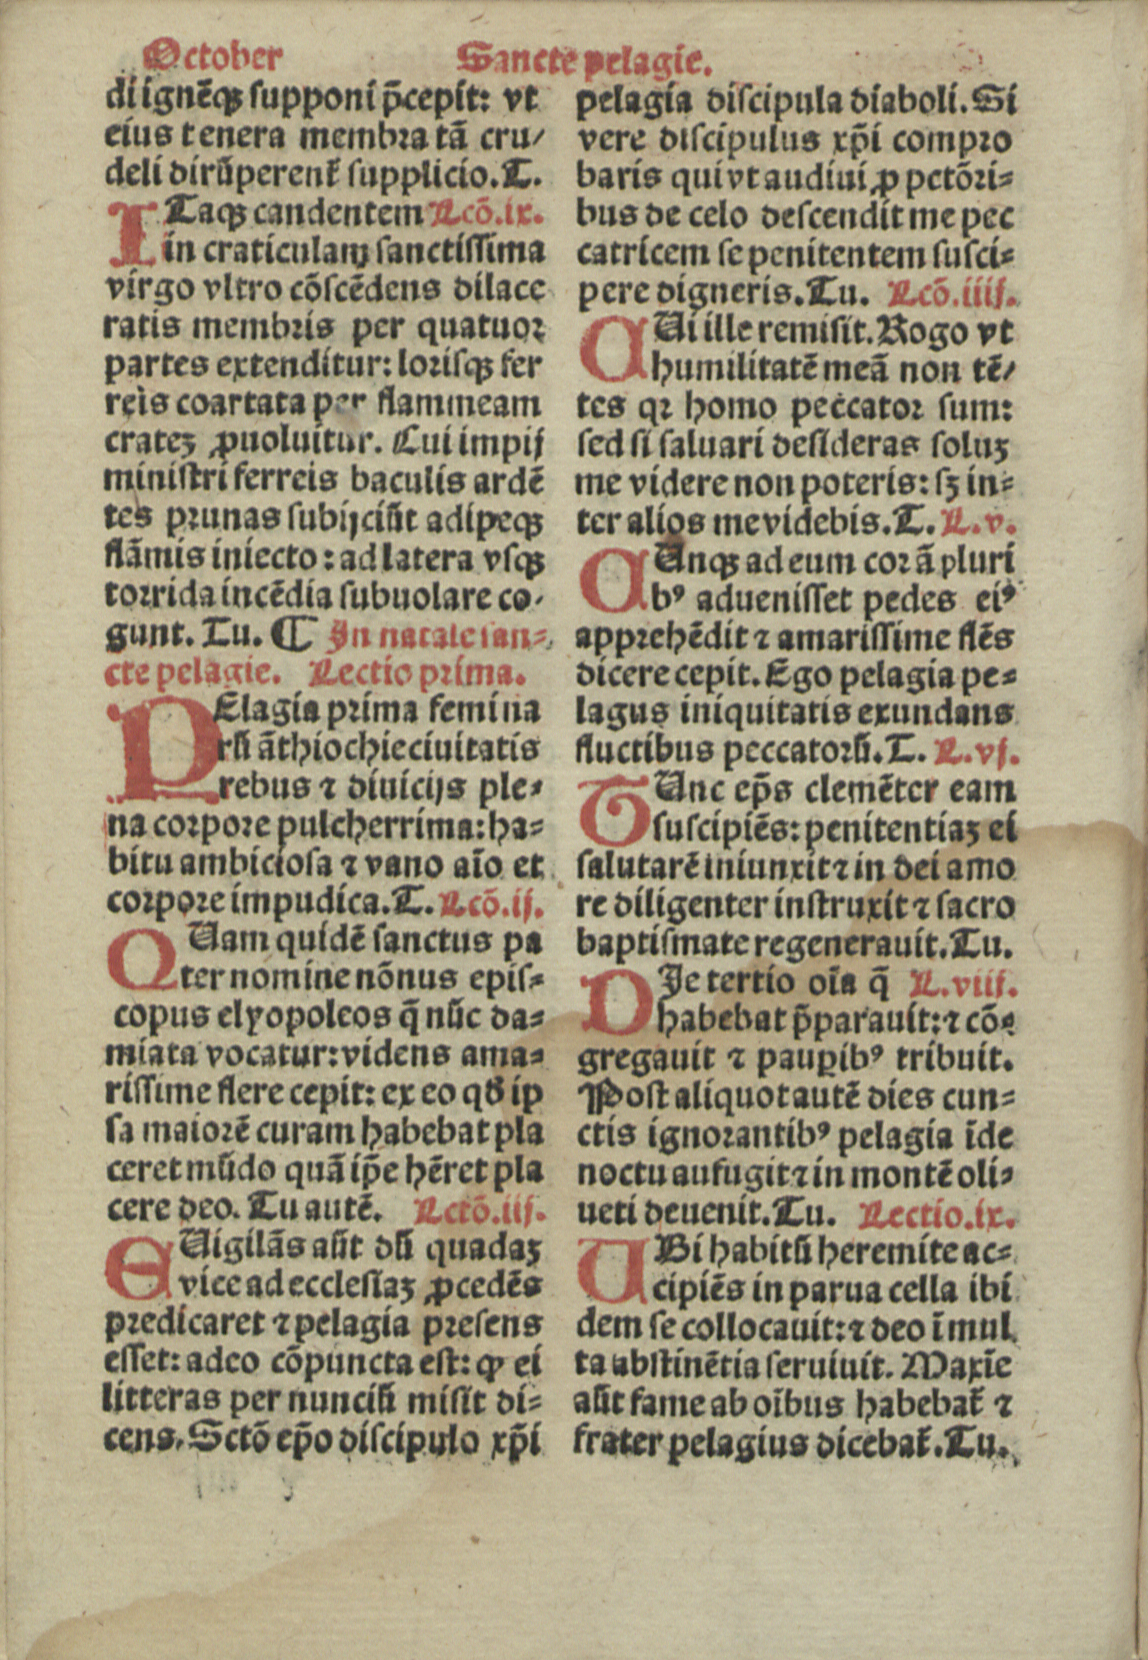 October Sancte pelagie.
di ignēqꝫ supponi p̄cepit: vt
eius tenera membra tā cru/
deli dirūperent᷑ supplicio. T.
ITaqꝫ candentem Lcō.ix.
in craticulaꝫ sanctissima
virgo vltro cōscēdens dilace
ratis membris per quatuor
partes extenditur: lorisqꝫ fer
reis coartata per flammeam
crateꝫ ꝓuoluitur. Cui impij
ministri ferreis baculis ardē
tes prunas subijciūt adipeqꝫ
flāmis iniecto: ad latera vsqꝫ
torrida incēdia subuolare co-
gunt. Tu. ¶ In natale san-
cte pelagie. Lectio prima.
PElagia prima femina
rū āthiochie ciuitatis
rebus ⁊ diuicijs ple-
na corpore pulcherrima: ha-
bitu ambiciosa ⁊ vano aīo et
corpore impudica. T. Lcō.ij.
QUam quidē sanctus pa
ter nomine nōnus epis-
copus elyopoleos q̄ nūc da-
miata vocatur: videns ama-
rissime flere cepit: ex eo qď ip
sa maiorē curam habebat pla
ceret mūdo quā ip̄e hēret pla
cere deo. Tu autē. Lctō.iij.
EUigilās aūt dū quadaꝫ
vice ad ecclesiaꝫ ꝓcedēs
predicaret ⁊ pelagia presens
esset: adeo cōpuncta est: ꝙ ei
litteras per nunciū misit di-
cens. Sctō ep̄o discipulo xp̄i
pelagia discipula diaboli. Si
vere discipulus xp̄i compro
baris qui vt audiui ꝓ pctōri-
bus de celo descendit me pec
catricem se penitentem susci-
pere digneris. Tu. Lcō.iiij.
CUi ille remisit. Rogo vt
humilitatē meā non tē/
tes qꝛ homo peccator sum:
sed si saluari desideras soluꝫ
me videre non poteris: sꝫ in-
ter alios me videbis. T. L.v.
CUnqꝫ ad eum corā pluri
bꝰ aduenisset pedes eiꝰ
apprehēdit ⁊ amarissime flēs
dicere cepit. Ego pelagia pe-
lagus iniquitatis exundans
fluctibus peccatorū. T. L.vj.
TUnc ep̄s clemēter eam
suscipiēs: penitentiaꝫ ei
salutarē iniunxit ⁊ in dei amo
re diligenter instruxit ⁊ sacro
baptismate regenerauit. Tu.
DIe tertio oīa q̄ L.viij.
habebat p̄parauit: ⁊ cō-
gregauit ⁊ pauꝑibꝰ tribuit.
Post aliquot autē dies cun-
ctis ignorantibꝰ pelagia īde
noctu aufugit ⁊ in montē oli-
ueti deuenit. Tu. Lectio.ix.
UBi habitū heremite ac-
cipiēs in parua cella ibi
dem se collocauit: ⁊ deo ī mul
ta abstinētia seruiuit. Maxīe
aūt fame ab oībus habebat᷑ ⁊
frater pelagius dicebat᷑. Tu.